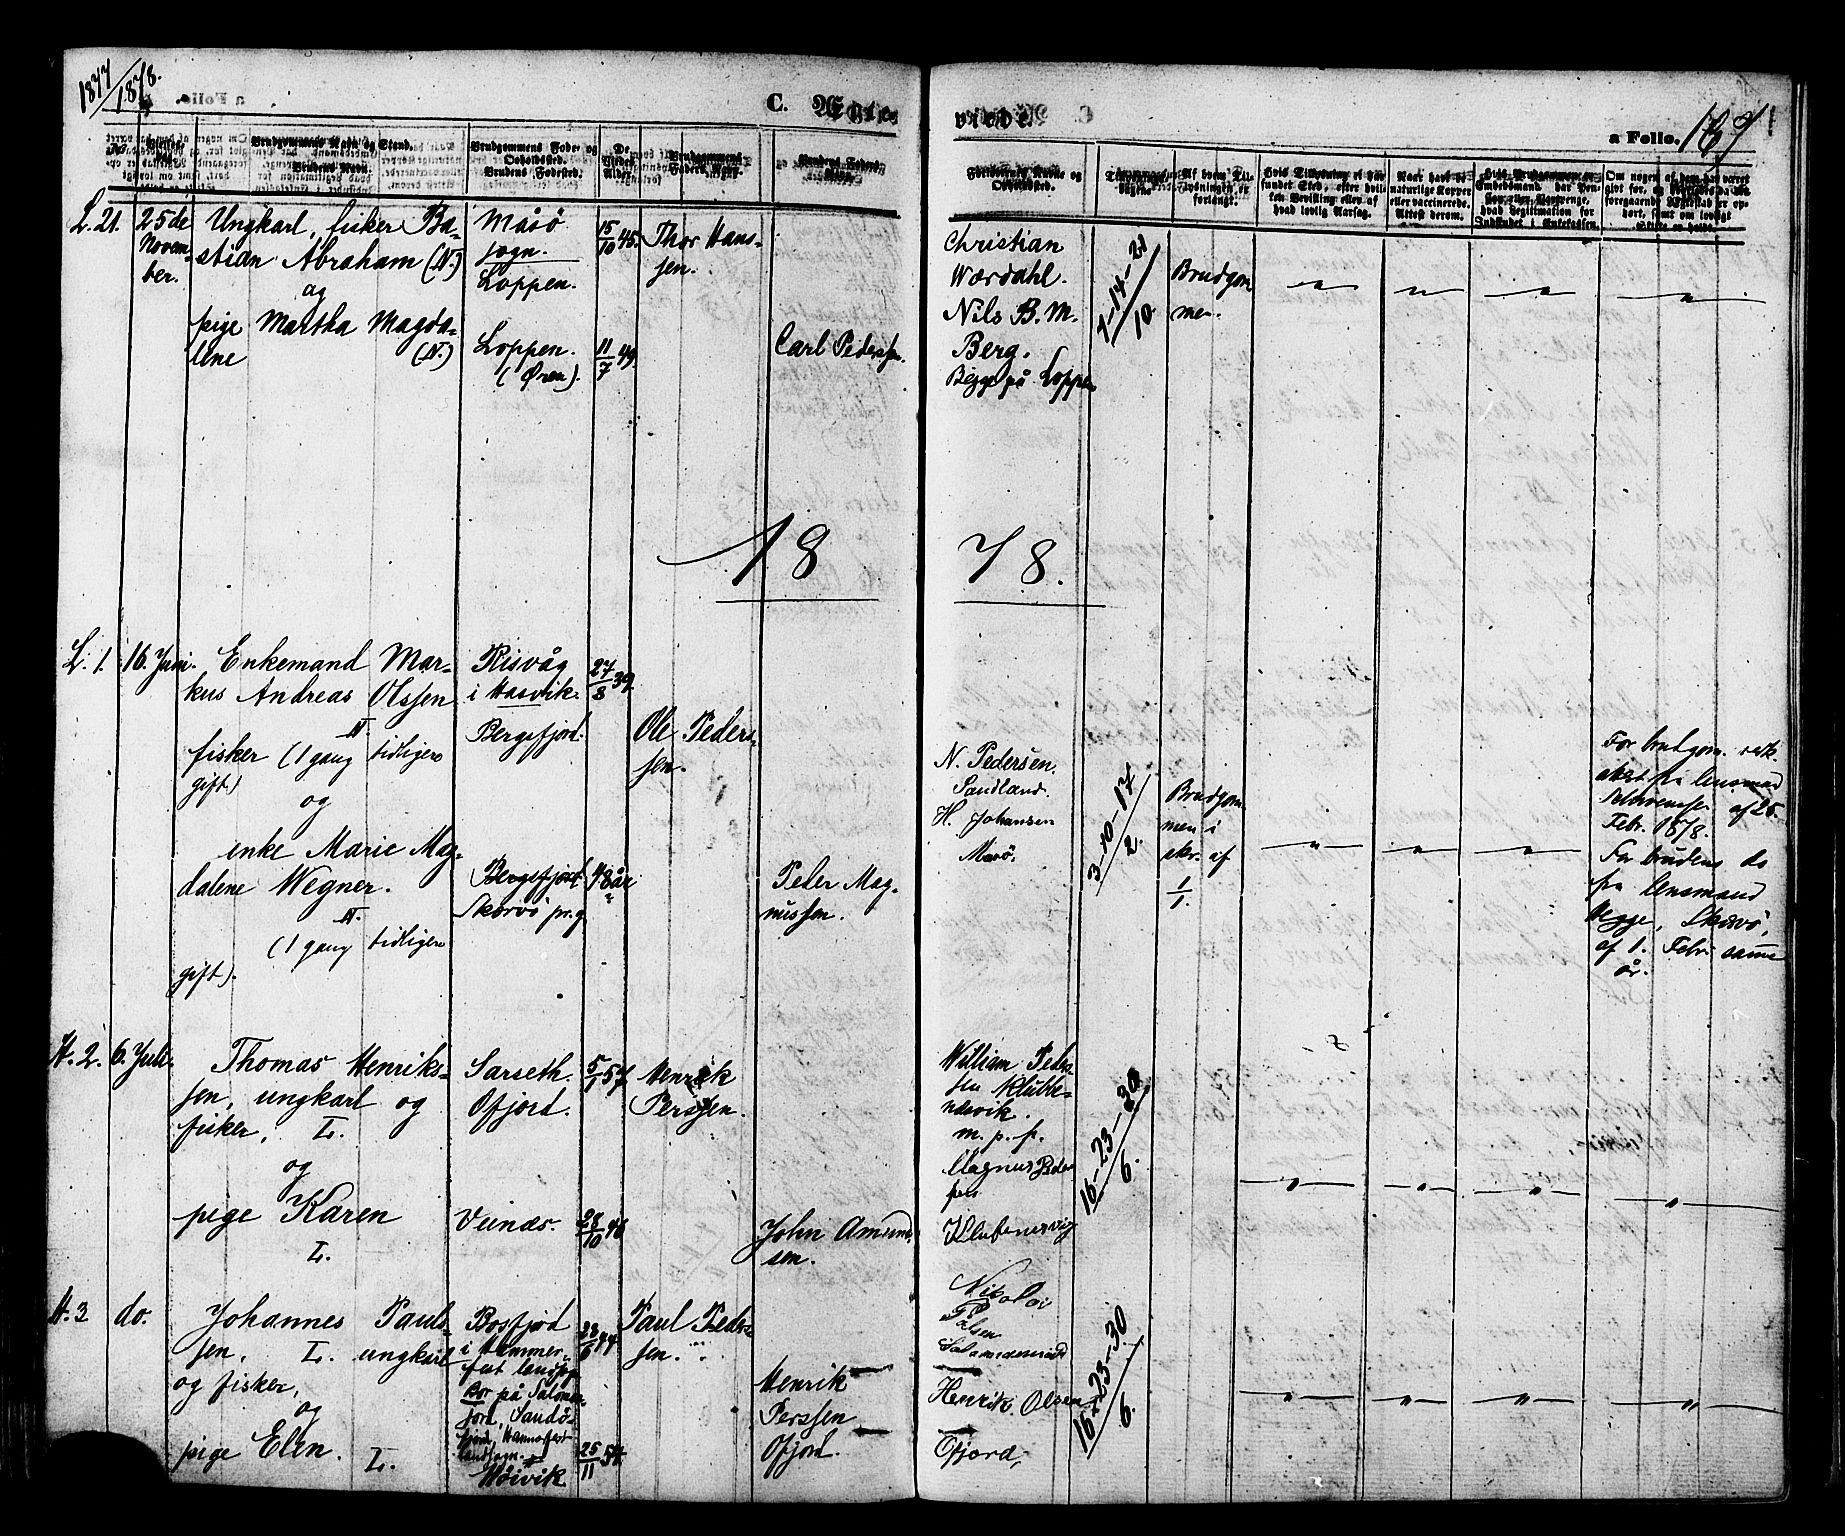 1877/1878.
C. Ægte-
viede.
a Folio. 169
Brudgommens Navn og Stand.
Brudens Navn.
Brudgommens Føde- og Opholdssted.
Brudens Fødested.
De Viedes Alder.
Brudgommens Faders Navn.
Brudens Faders Navn.
Forlovernes Navne og Opholdssted.
Af hvem Tillysningen er forlangt.
L. 21.
25de Novem-
ber.
Ungkarl, fisker Ba-
stian Abraham (N.)
og
pige Martha Magda-
lene (N.)
Måsö
sogn.
Loppen.
Loppen.
(Øren).
15/10 45.
11/7 49.
Thor Hans-
sen.
Carl Pedersen.
Christian
Wærdahl.
Nils B. M.
Berg.
Begge på Loppen
7-14-21/10.
Brudgom
men.
18
78.
L. 1.
16. Juni.
Enkemand Mar-
kus Andreas Olssen
N.
fisker (1 gang tidligere
gift)
og
enke Marie Mag-
dalene Wegner.
N.
(1 gang tidligere
gift).
Risvåg
i Hasvik.
Bergsfjord.
Bergsfjord
Skærvö pr.g.
27/8 39.
48 år
Ole Peders-
sen.
Peder Mag-
nussen.
N. Pedersen.
Sandland.
H. Johansen
Marö.
3-10-17/2.
Brudgom
men i
skr. af
1/1.
For brudgom.
fra lensmand
af 25.
Febr. 1878.
For brudens do
fra lensmand
Hegge, Skærvö,
af 1. Febr. samme
år.
H. 2.
6. Juli.
Thomas Henriks-
sen, ungkarl og
fisker, L.
og
pige Karen
L.
Sarseth.
Ofjord.
Veines.
5/1 57.
28/10 46
Henrik
Perssen.
John Amund-
sen.
William Peder
sen Klubbe-
nesvik.
m. p. p.
Magnus Peder
sen
Klubenesvig
16-23-30/6.
H. 3
do.
Johannes Pauls-
sen, L. ungkarl
og fisker,
og
pige Elen. L.
Bosfjord
i Hammer-
fest landsog
Bor på Salomer
fjord, Sandö-
fjord, Hammerfest
landsogn.
Höivik
28/6 44
25/11 54.
Paul Peder-
sen.
Henrik
Perssen
Ofjord.
Nikolai
Palsen
Henrik. Olsen
Ofjord,
16-23-30/6.